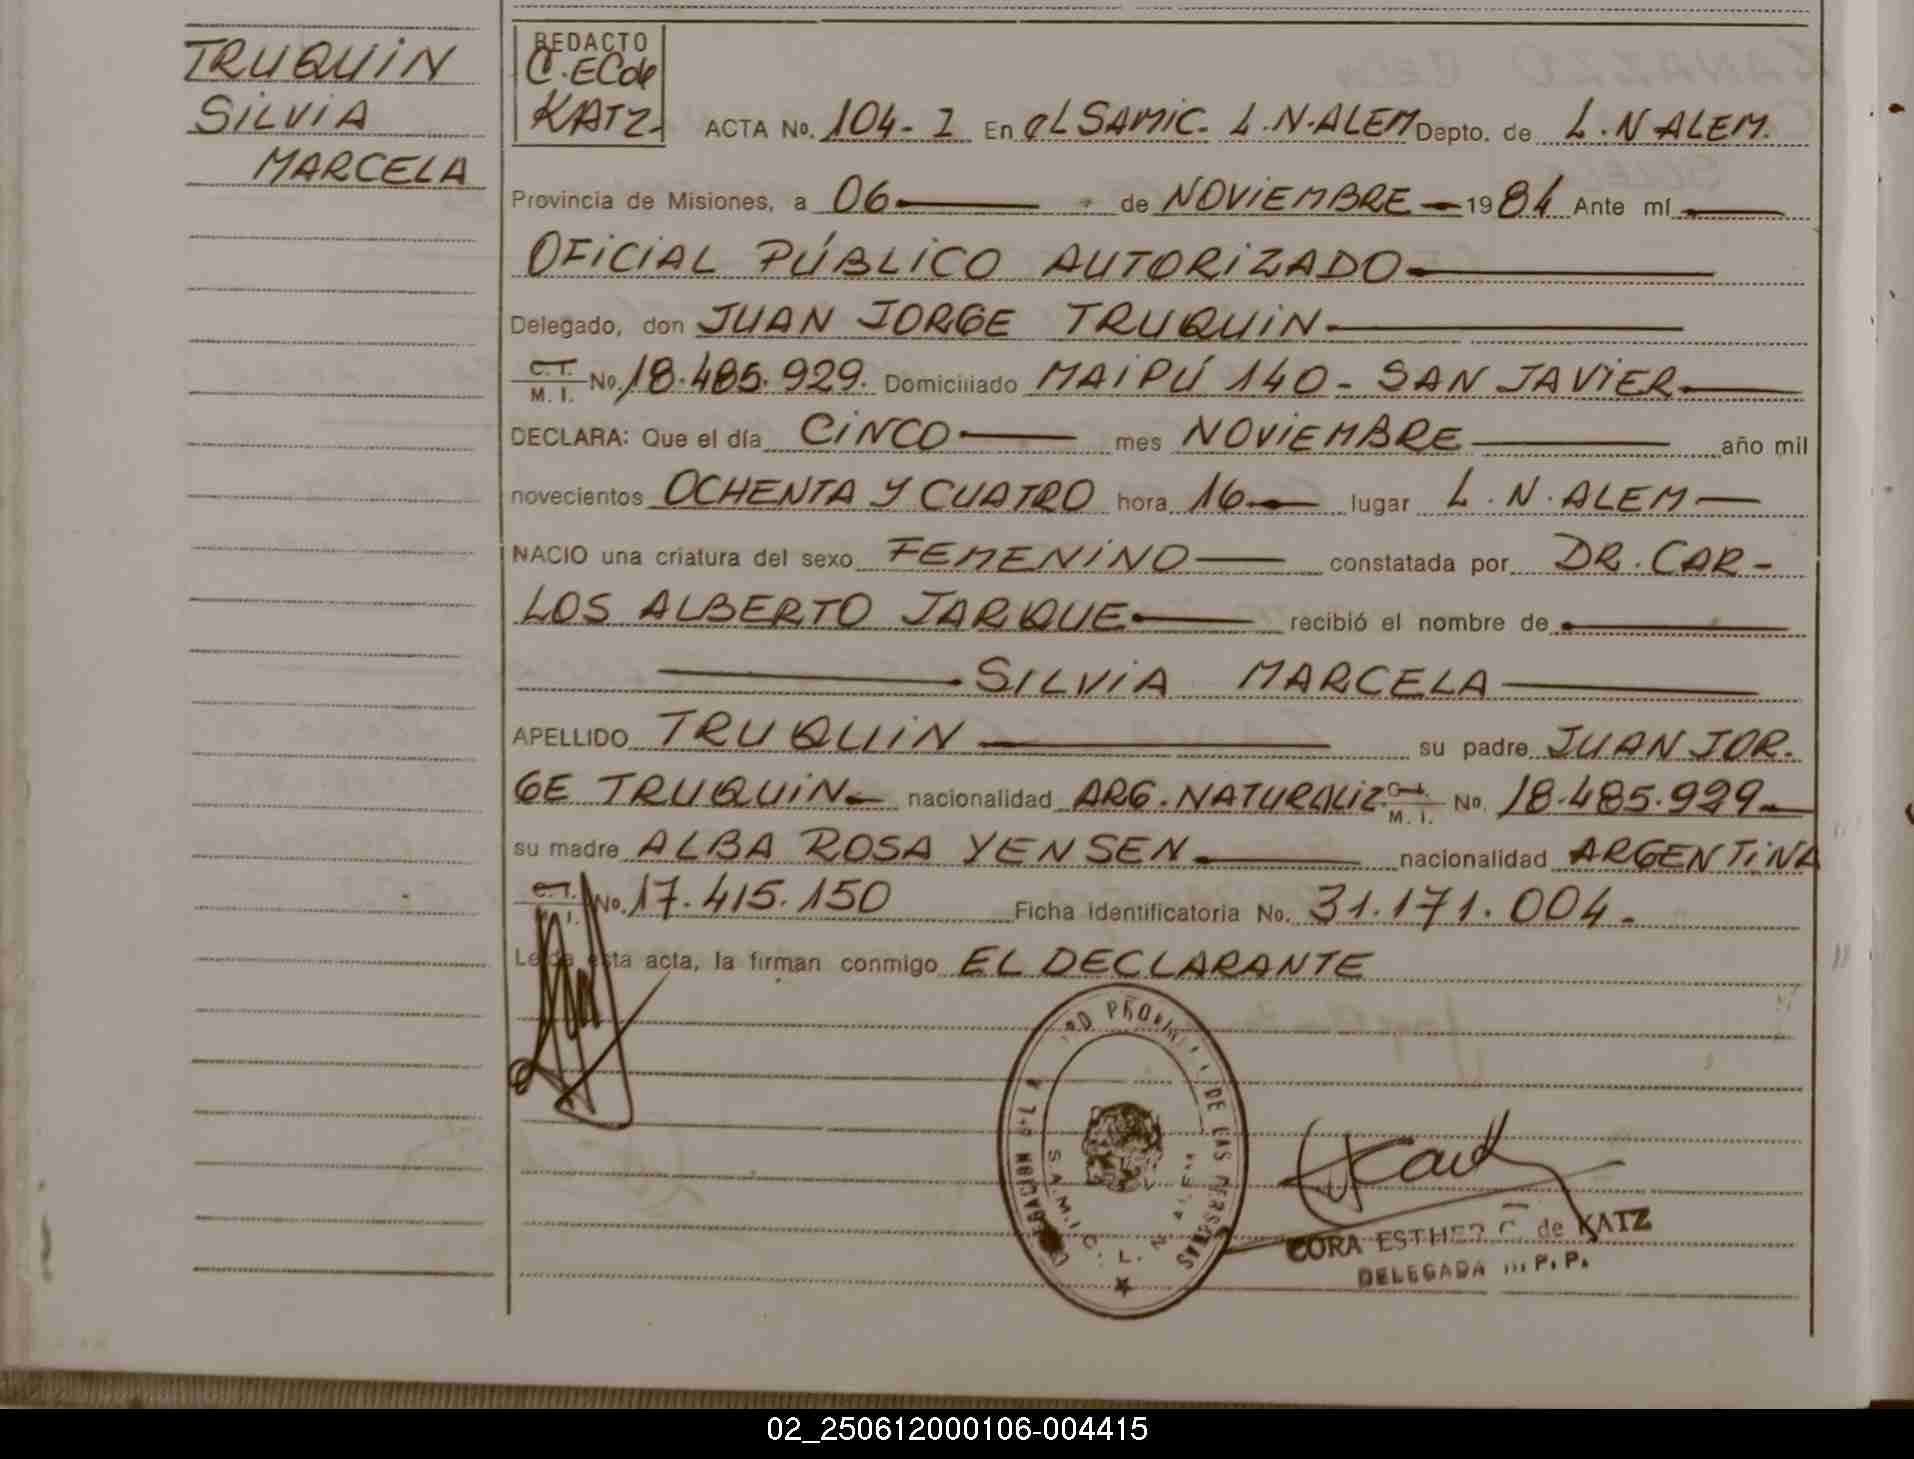 TRUQUIN
SILVIA
MARCELA
REDACTO
C. EC de
KATZ
ACTA No. 104-I En el SAMIC. L.N.ALEM Depto. de L.N ALEM.
Provincia de Misiones, a 06 de NOVIEMBRE 1984 Ante mí
OFICIAL PÚBLICO AUTORIZADO
Delegado, don JUAN JORGE TRUQUIN
C.I. M. I. No. 18.485.929. Domiciliado MAIPÚ 140 - SAN JAVIER
DECLARA: Que el día CINCO mes NOVIEMBRE año mil
novecientos OCHENTA Y CUATRO hora 16 lugar L. N. ALEM
NACIO una criatura del sexo FEMENINO constatada por DR. CAR-
LOS ALBERTO JARQUE recibió el nombre de
SILVIA MARCELA
APELLIDO TRUQUIN su padre JUAN JOR.
GE TRUQUIN nacionalidad ARG. NATURALIZ. C.I. M. I. No. 18.485.929
su madre ALBA ROSA YENSEN nacionalidad ARGENTINA
C.I. M. I. No. 17.415.150 Ficha Identificatoria No. 31.171.004.
Leída esta acta, la firman conmigo EL DECLARANTE
DE LAS PERSONAS
S.A.M.I.C. L. N. ALEM
CORA ESTHER C. de KATZ
DELEGADA R. P. P.
02_250612000106-004415